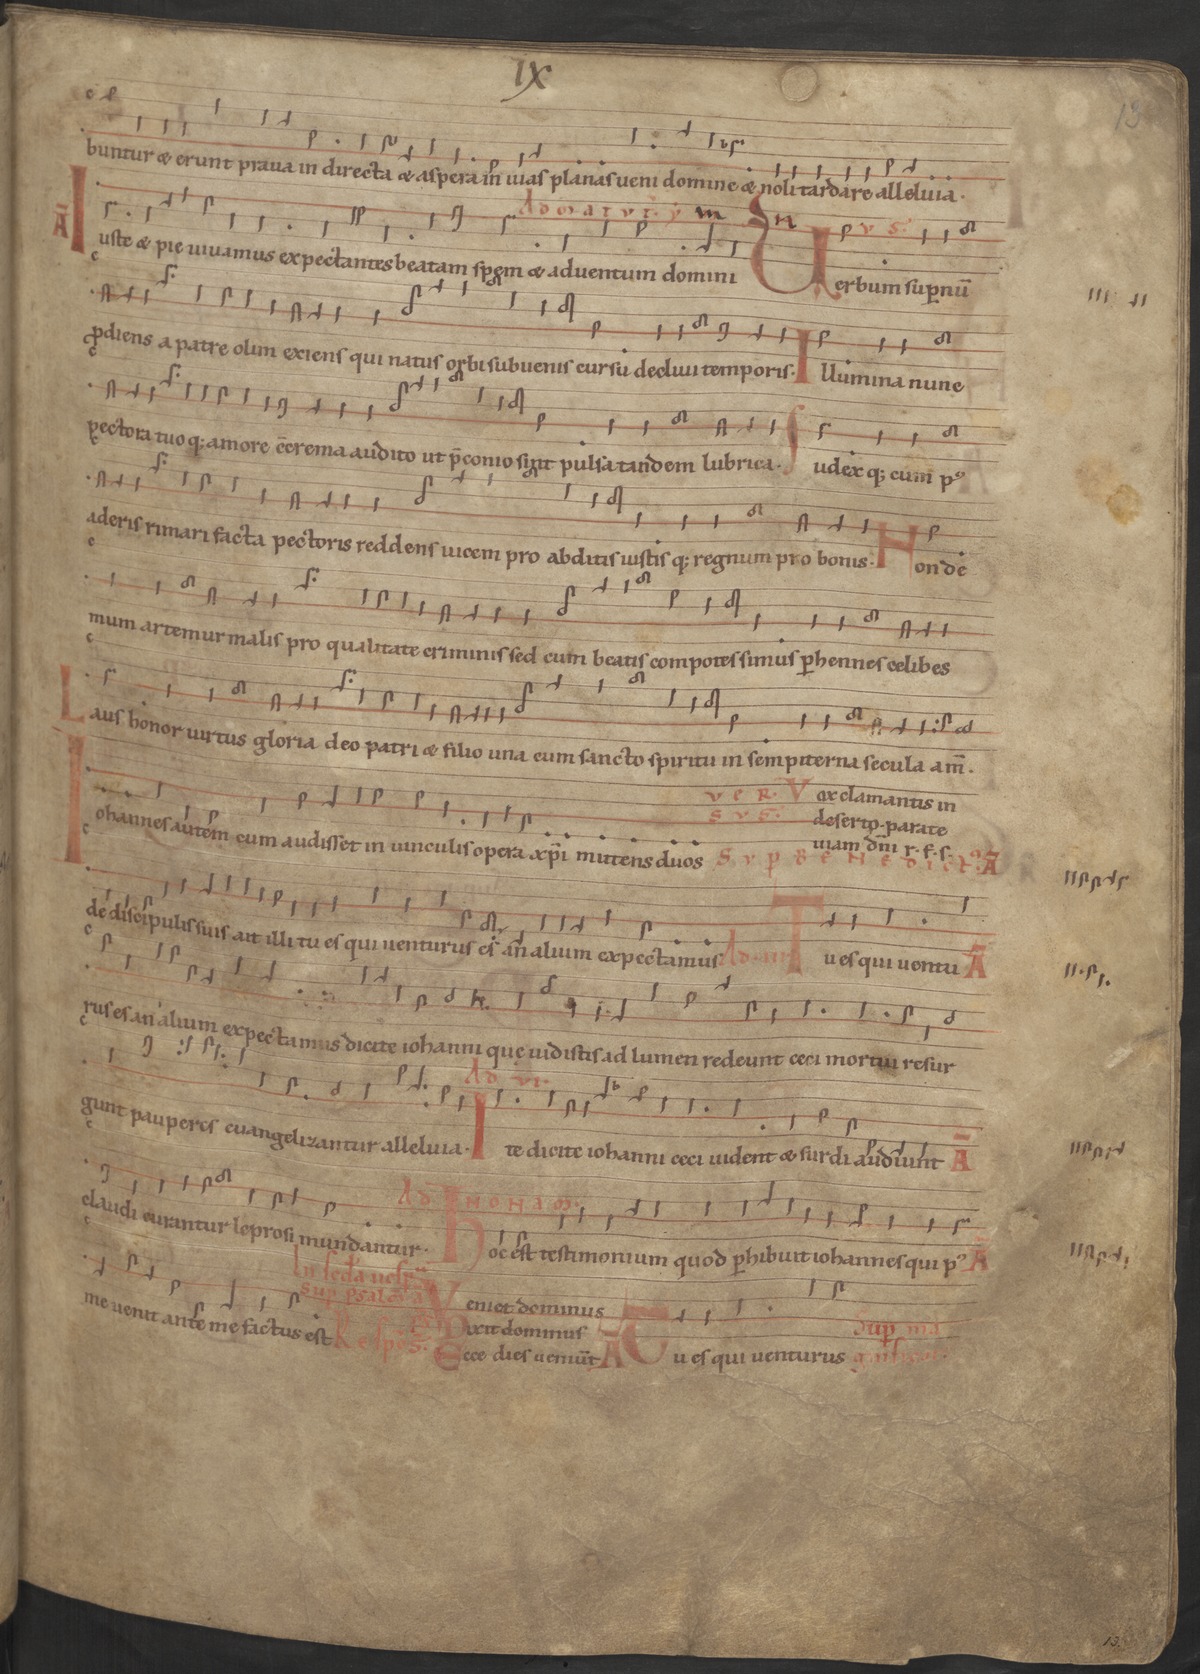 IX
13
buntur & erunt praua in directa & aspera in uias planas ueni domine & noli tardare alleluia.
Ad matut. ymnpus.
Ā Iuste & pie uiuamus expectantes beatam spem & aduentum domini Uerbum suꝑnū
ꝓdiens a patre olim exiens qui natus orbi subuenis cursu decliui temporis. Illumina nunc
pectora tuoq; amore c̄crema audito ut p̄conio sint pulsa tandem lubrica. Iudexq; cum pꝰ
aderis rimari facta pectoris reddens uicem pro abditis iustisq; regnum pro bonis. Non de
mum artemur malis pro qualitate criminis sed cum beatis compotes simus ꝑhennes celibes
Laus honor uirtus gloria deo patri & filio una cum sancto spiritu in sempiterna secula am̄.
VeR Vox clamantis in
sus. deserto. parate
uiam dn̄i r. f. s.
Iohannes autem cum audisset in uinculis opera xp̄i mittens duos Sup Benedict. Ā
de discipulis suis ait illi tu es qui uenturus es an alium expectamus Ad .iii. Tu es qui uentu Ā
rus es an alium expectamus dicite iohanni que uidistis ad lumen redeunt ceci mortui resur
Ad vi.
gunt pauperes euangelizantur alleluia. Ite dicite iohanni ceci uident & surdi audiunt Ā
Ad Nonam.
claudi curantur leprosi mundantur. Hoc est testimonium quod ꝑhibuit iohannes qui pꝰ Ā
sup psalmos Ā Veniet dominus
me uenit ante me factus est Respos. Dixit dominus Sup ma
Ecce dies ueniūt Ā Tu es qui uenturus gnificat.
13.